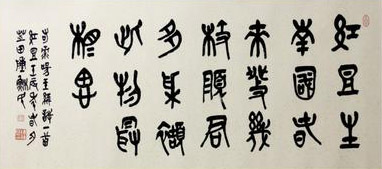 紅豆生
南國春
來發幾
枝願君
多采擷
此物最
相思
王維詩一首
紅豆壬辰